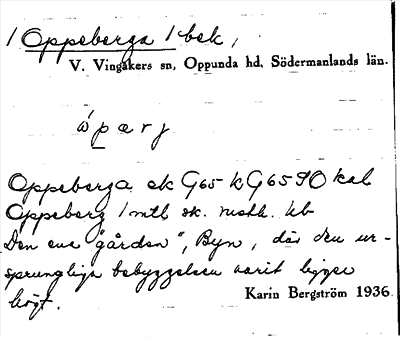 / Oppeberga / bek,
V. Vingåkers sn, Oppunda hd, Södermanlands län.
ẃpærj
Oppeberga ek G65 k G6590 kal
Oppeberg 1 mtl sk.
Den ena "gården", Byn, där den ur-
sprungliga bebyggelsen varit ligger
högt.
Karin Bergström 1936